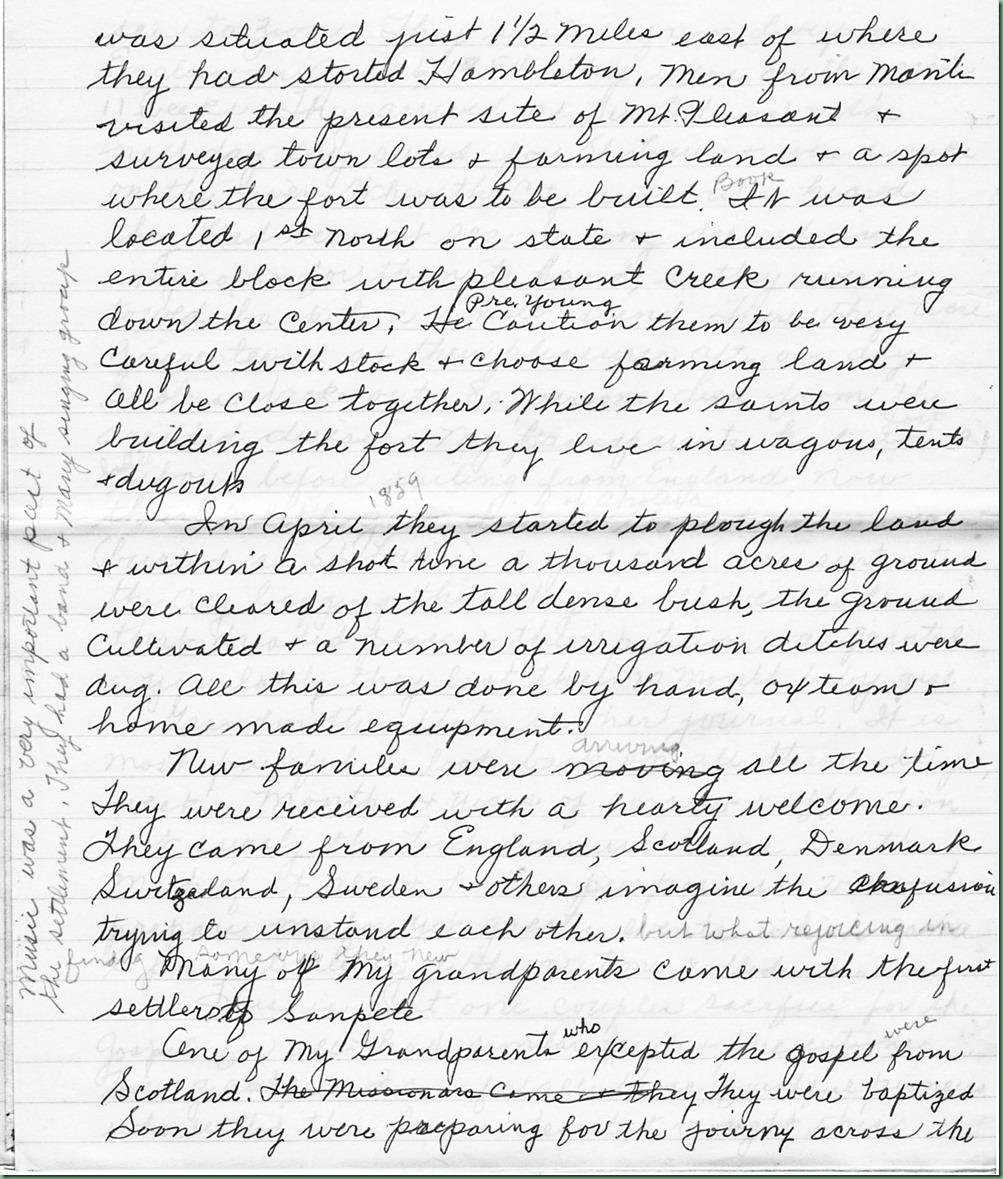 was situated just 1 1/2 miles east of where
they had storted Hambleton. Men from Manti
visited the present site of Mt. Pleasant +
surveyed town lots + farming land + a spot
Book
where the fort was to be built. It was
located 1st North on state + included the
entire block with pleasant Creek running
Pre. Young
down the Center. He Caution them to be very
Careful with stock + choose farming land +
all be Close together. While the saints were
building the fort they live in wagons, tents
+ dugouts
1859
In April they started to plough the land
+ within a shot time a thousand acres of ground
were cleared of the tall dense bush, the ground
Cultivated + a number of irrigation ditches were
dug. All this was done by hand, ox team +
home made equipment.
arriving
New families were moving all the time
They were received with a hearty welcome.
They came from England, Scotland, Denmark
Switzeland, Sweden + others imagine the confusion
trying to unstand each other. but what rejoicing in
finding someone they new
Many of My grandparents came with the first
settlers to Sanpete
who were
One of My Grandparents excepted the gospel from
Scotland. The Missionars Come + they They were baptized
Soon they were preparing for the journy across the
Music was a very important part of
the settlement. They had a band + Many singing group